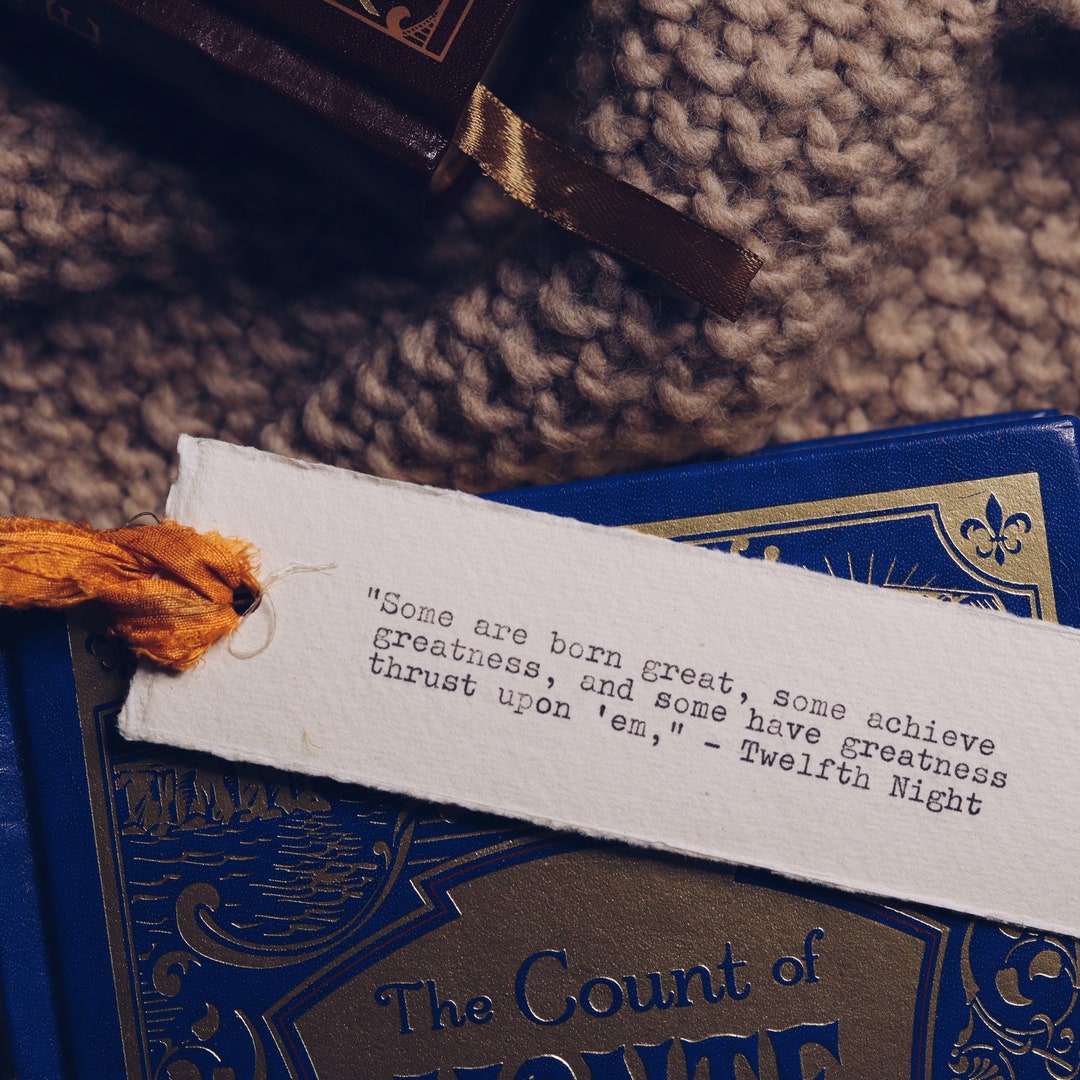 "Some are born great, some achieve
greatness, and some have greatness
thrust upon 'em," - Twelfth Night
The Count of
MONTE